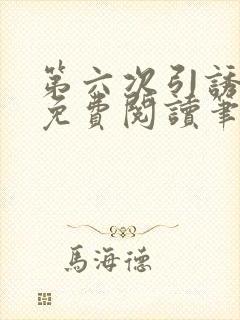 第六次引誘
免費閱讀筆
馬海德